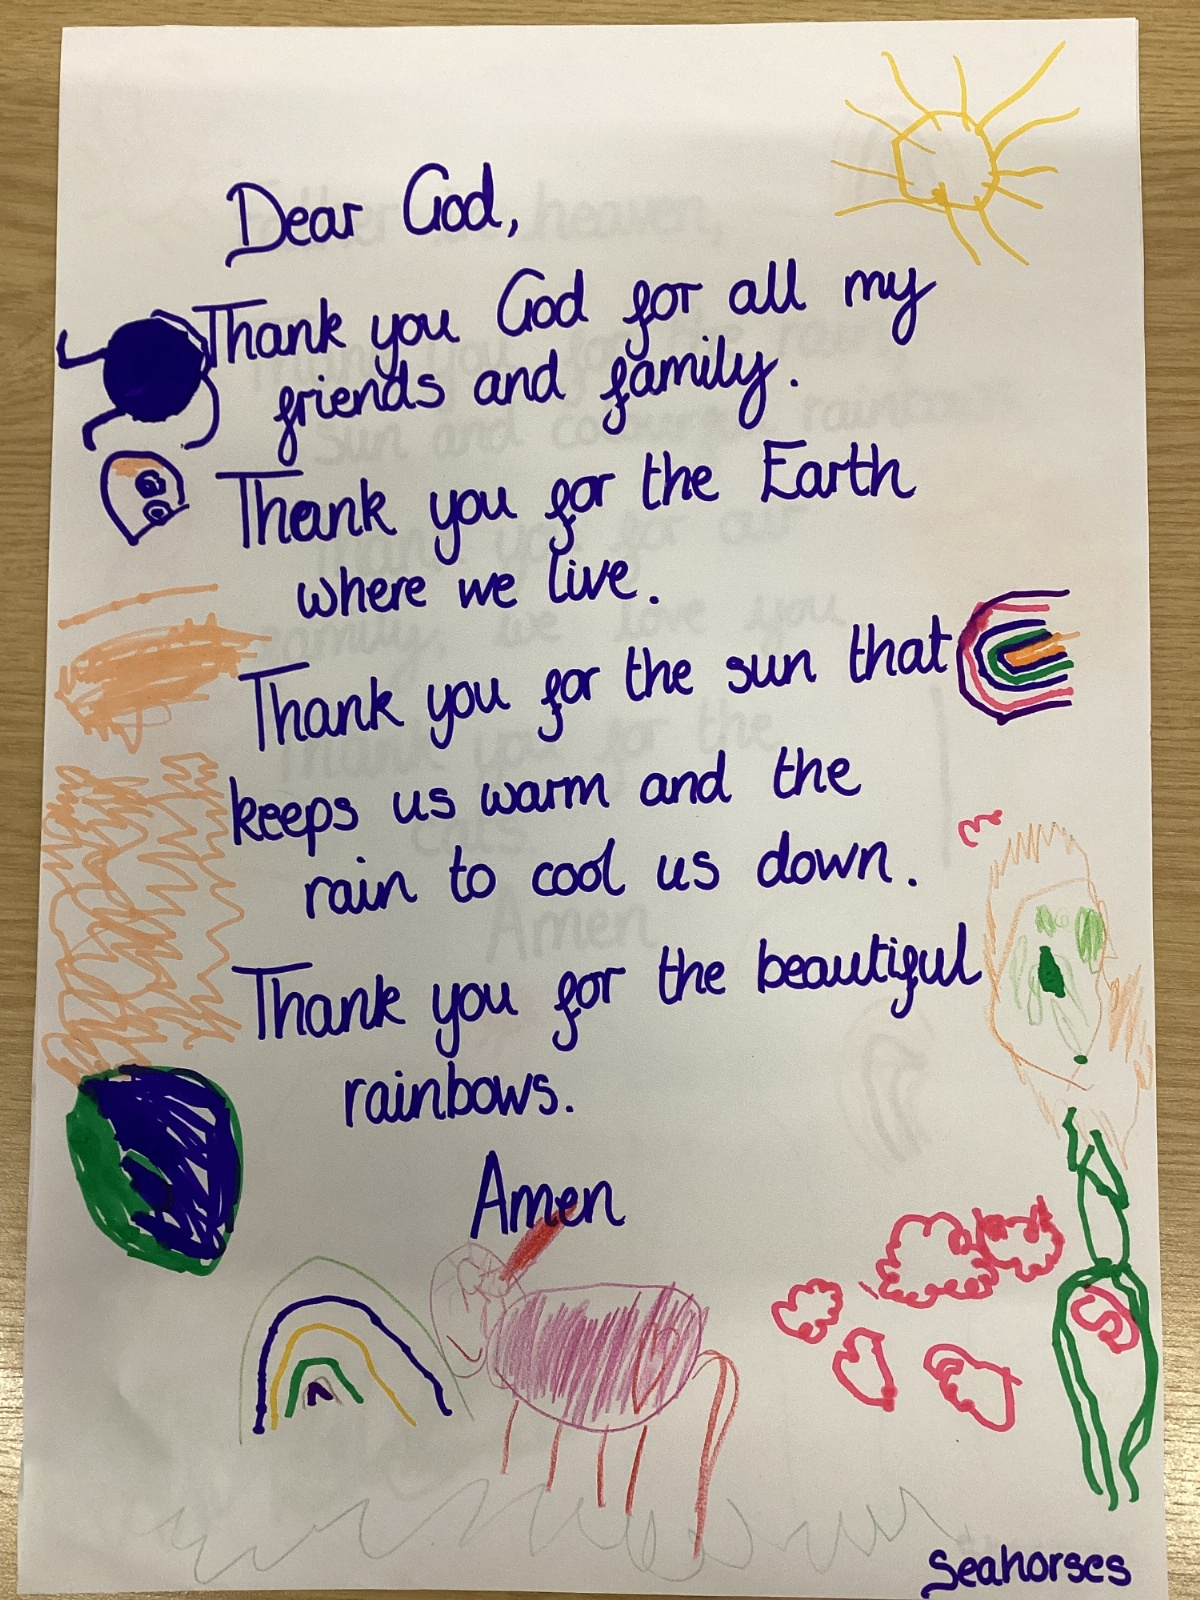 Dear God,
Thank you God for all my
friends and family.
Thank you for the Earth
where we live.
Thank you for the sun that
keeps us warm and the
rain to cool us down.
Thank you for the beautiful
rainbows.
Amen
Seahorses